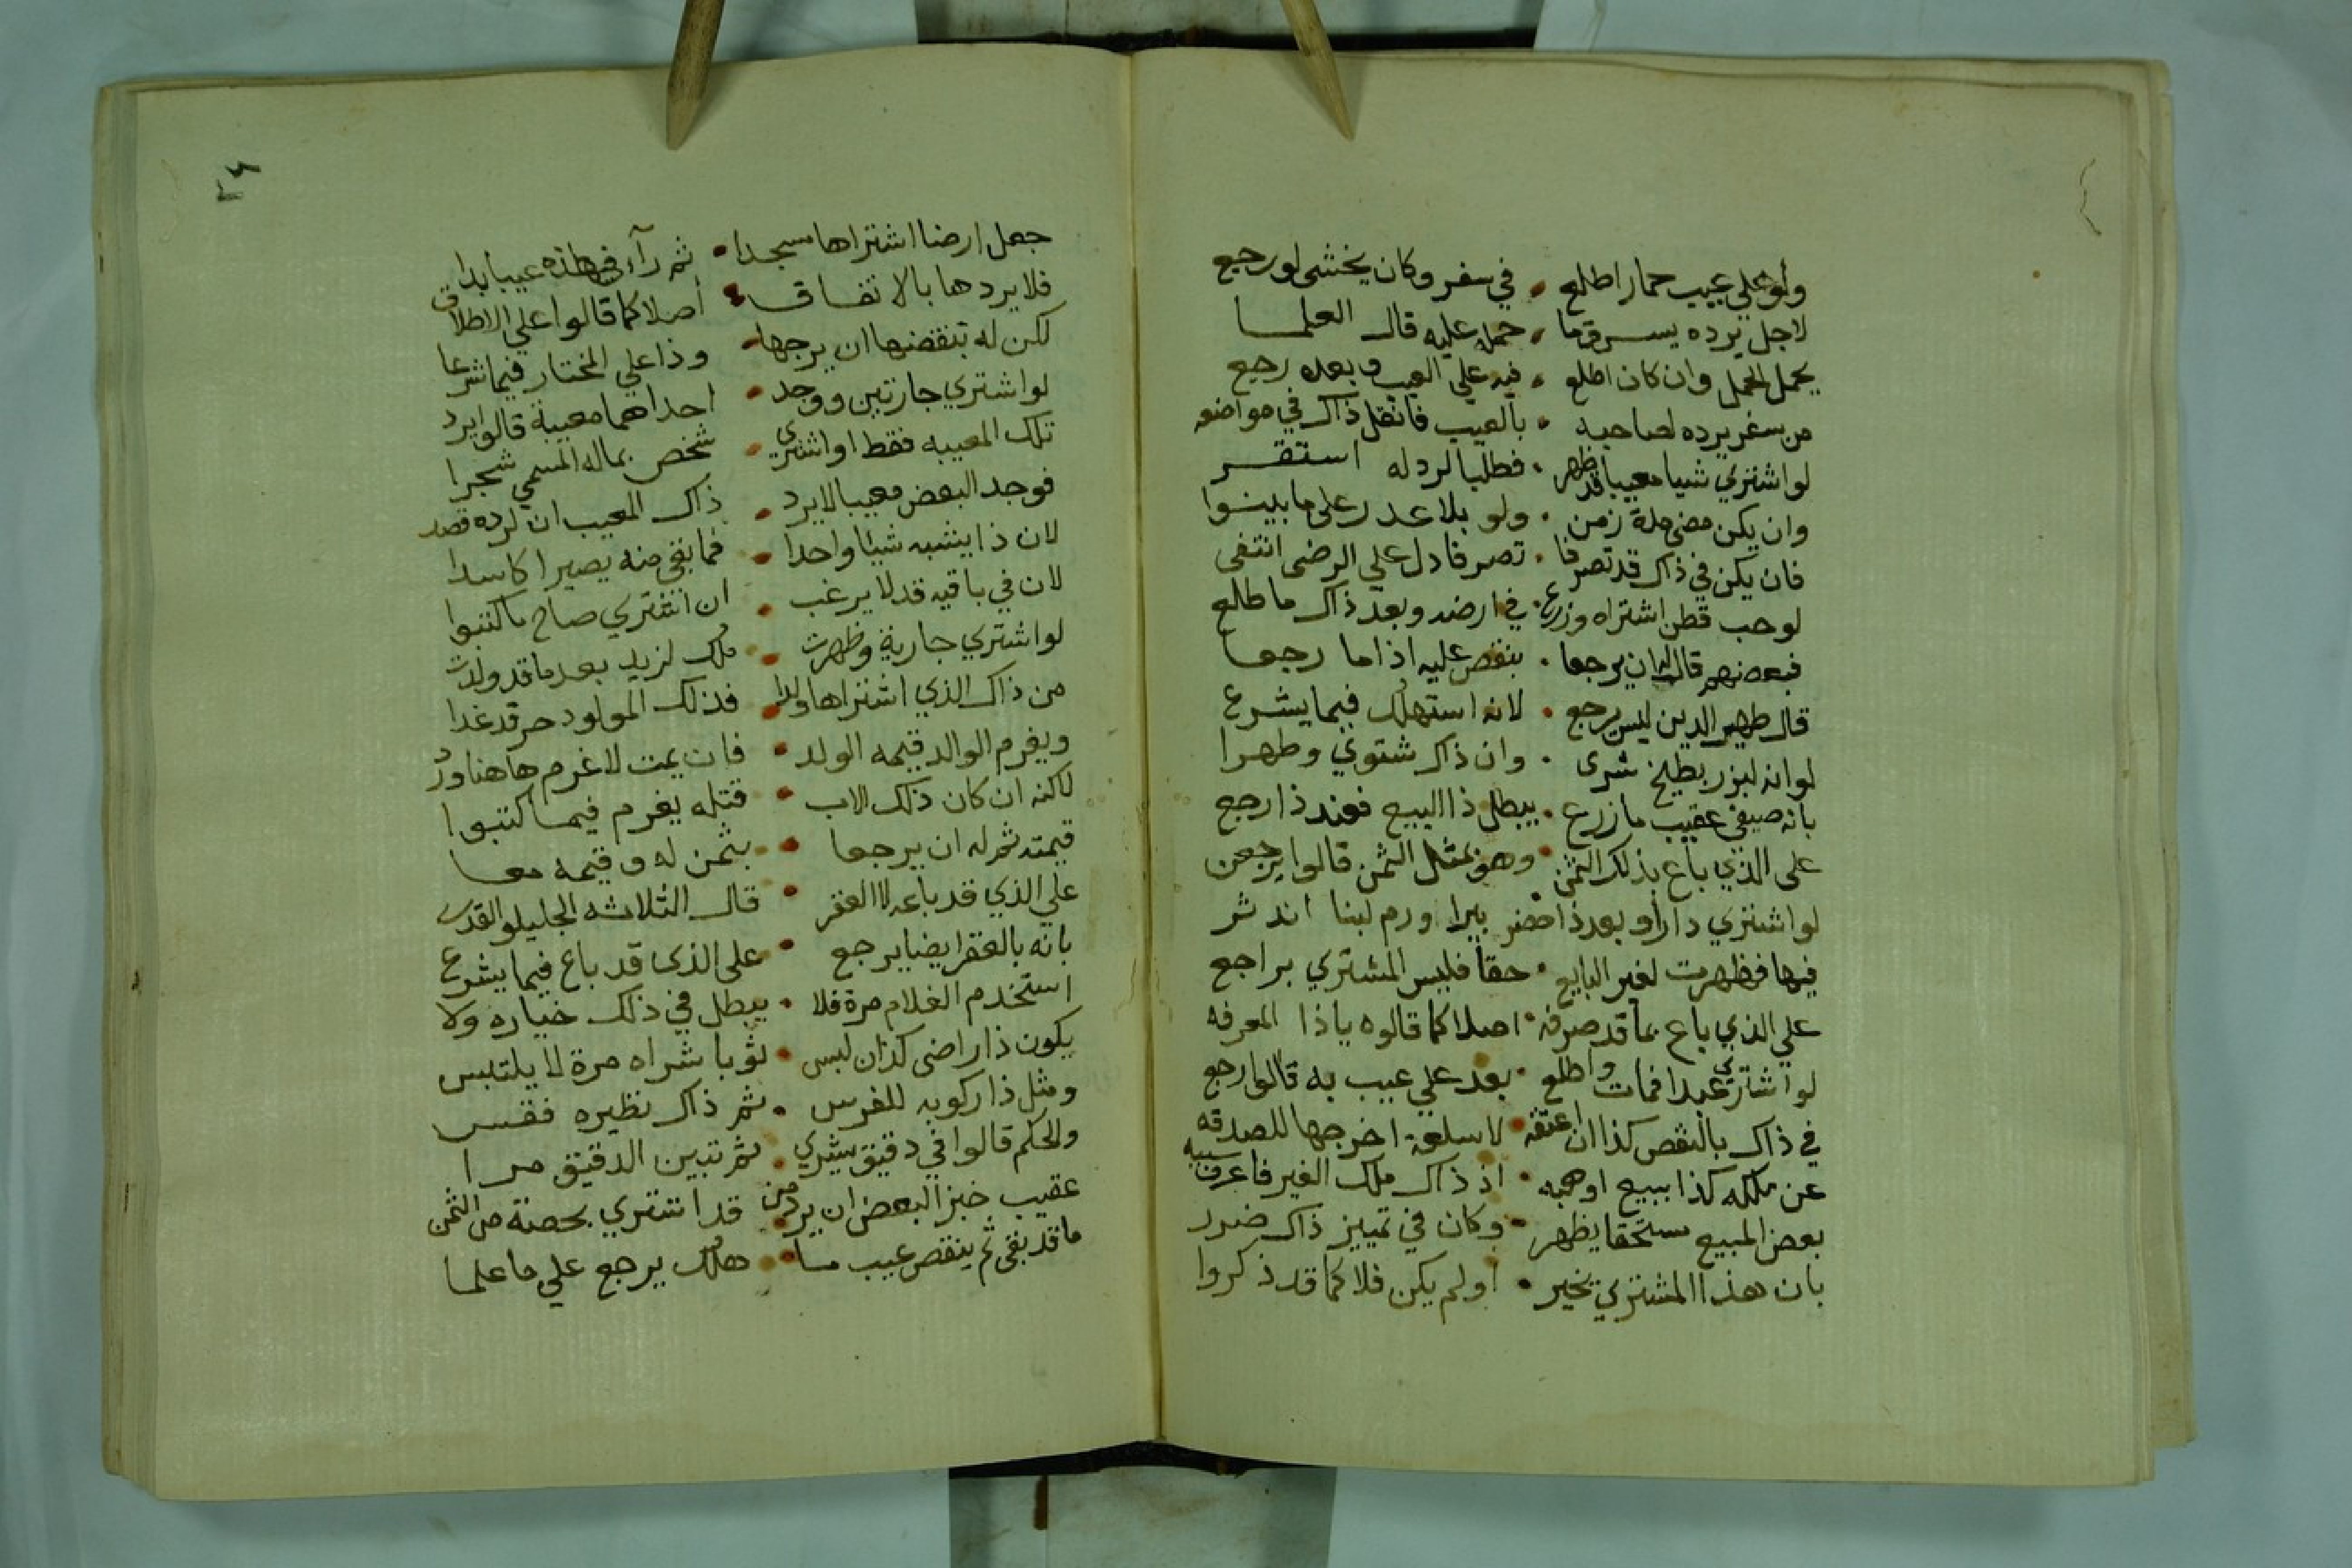 ولو علي عيب حمار اطلع • في سفر وكان يخشى لو رجع
لاجل يرده يسرق ما • حمل عليه قال العلما
يحمل الحمل وان كان اطلع • فيه علي العيب وبعده رجع
من سفر يرده لصاحبه • بالعيب فانقل ذاك في مواضعه
لو اشتري شيا معيبا قد ظهر • فطلبا لرد له استقر
وان يكن مضى مدة زمن • ولو بلا عدر على ما بينوا
فان يكن في ذاك قد تصرفا • تصرفا دل علي الرضى انتفى
لو حب قطن اشتراه وزرع • في ارضه وبعد ذاك ما طلع
فبعضهم قال له ان يرجعا • بنقص عليه اذا ما رجعا
قال ظهير الدين ليس يرجع • لانه استهلك فيما يشرع
لو انه لبزر بطيخ شرى • وان ذاك شتوي وظهرا
بانه صيفي عقيب ما زرع • يبطل ذا البيع فعند ذا رجع
على الذي باع بذلك الثمن • وهو بمثل الثمن قالوا يرجعن
لو اشتري دارا وبعد ذا حفر بيرا ورم لبنا اندثر
فيها فظهرت لغير البايع • حقا فليس المشتري براجع
علي الذي باع بما قد صرفه • اصلا كما قالوه يا ذا المعرفه
لو اشترى عبدا فمات واطلع • بعد علي عيب به قالوا رجع
في ذاك بالنقص كذا ان اعتقه • لا سلعة اخرجها للصدقه
عن ملكه كذا ببيع او هبه • اذ ذاك ملك الغير فاعرف سببه
بعض المبيع مستحقا يظهر • وكان في تمييز ذاك ضرر
بان هذا المشتري تخير • او لم يكن فلا كما قد ذكروا
جعل ارضا اشتراها مسجدا • ثم رآء في هذه عيبا بدا
فلا يردها بالاتفاق • اصلا كما قالوا علي الاطلاق
لكن له بنقضها ان يرجعا • وذا علي المختار فيما شرعا
لو اشتري جارتين ووجد • احداهما معيبة قالوا يرد
تلك المعيبه فقط او اشترى • شخص بماله المسمي شجرا
فوجد البعض معيبا لا يرد • ذاك المعيب ان لرده قصد
لان ذا يشبه شيئا واحدا • فما بقي منه يصير كاسدا
لان في باقيه قد لا يرغب • ان انتفتري صاح ما كتبوا
لو اشتري جارية وظهرت • ملك لزيد بعد ما قد ولدت
من ذاك الذي اشتراها ولدا • فذلك المولود حر قد غدا
ويغرم الوالد قيمه الولد • فان يمت لا غرم هاهنا ورد
لاكنه ان كان ذلك الاب • قتله يغرم فيما كتبوا
قيمته ثم له ان يرجعا • بثمن له وقيمه معا
علي الذي قد باعه لا العقر • قال الثلاثه الجليلو القدر
بانه بالعقر ايضا يرجع • على الذى قد باع فيما يشرع
استخدم الغلام مرة فلا • يبطل في ذلك خياره ولا
يكون ذا راضي كذا ان لبس • ثوبا شراه مرة لا يلتبس
ومثل ذا ركوبه للفرس • ثم ذاك نظيره فقس
والحكم قالوا في دقيق يشري • ثم تبين الدقيق مرا
عقيب خبز البعض ان يرد من • قد اشتري بحصة من الثمن
ما قد بقى ثم ينقص عيب ما • هلك يرجع علي ما علما